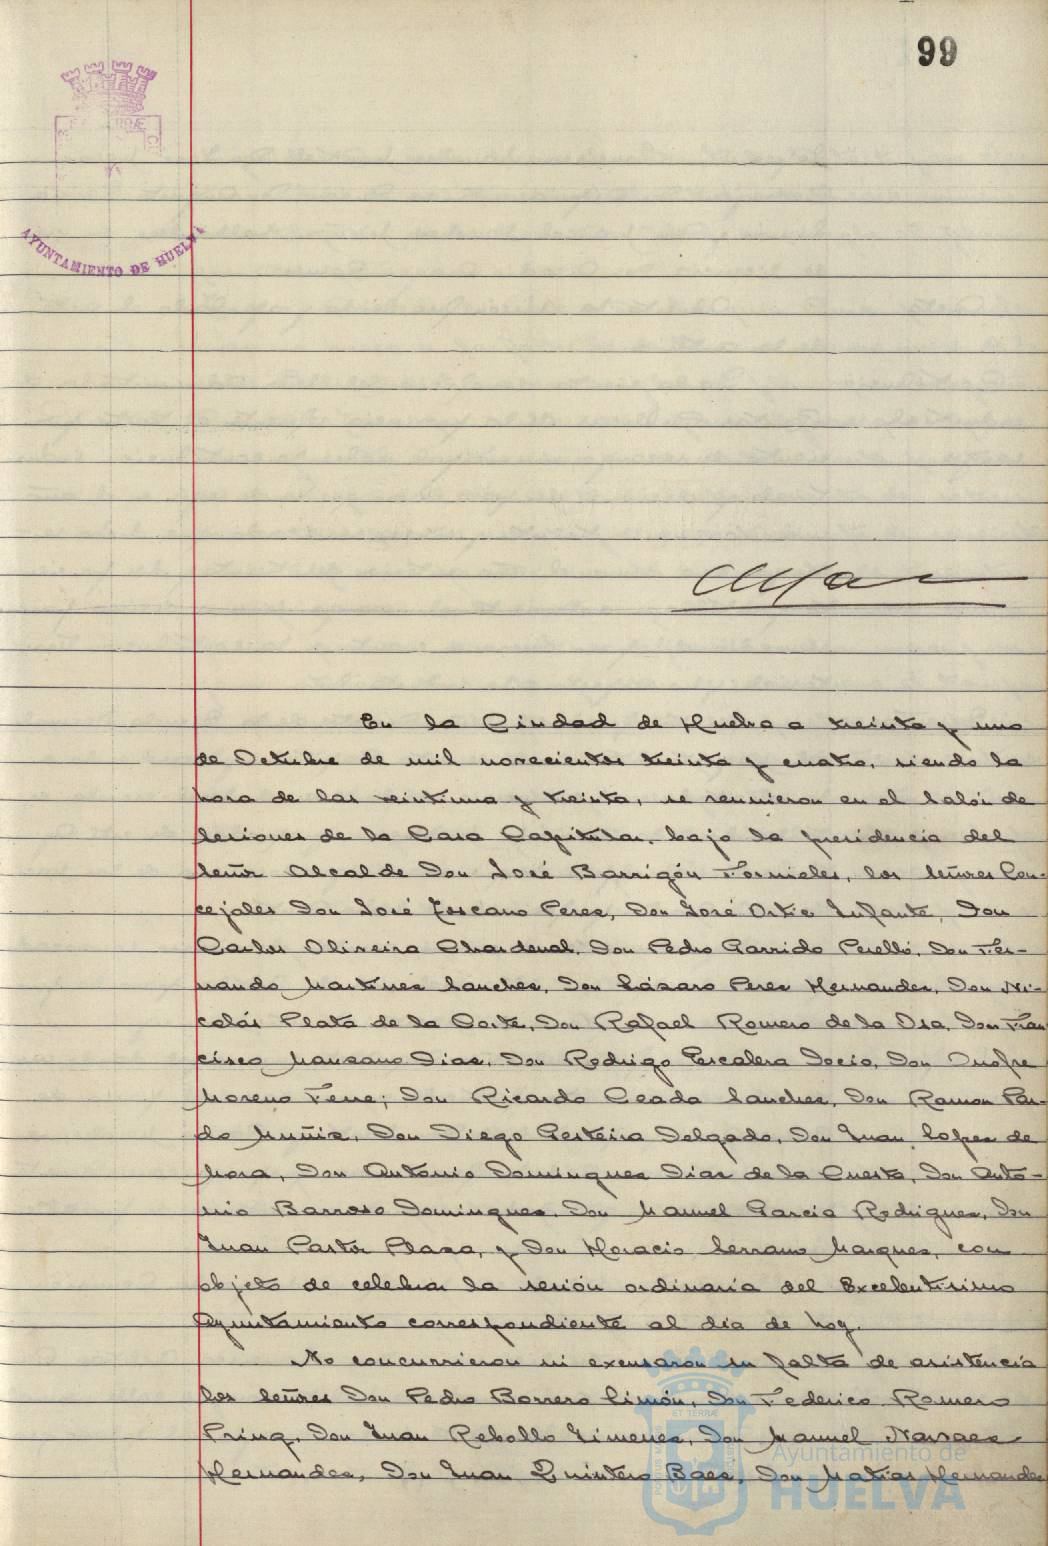 99
AYUNTAMIENTO DE HUELVA
En la Ciudad de Huelva a treinta y uno
de Octubre de mil novecientos treinta y cuatro, siendo la
hora de las veintiuna y treinta, se reunieron en el Salón de
Sesiones de la Casa Capitular, bajo la presidencia del
Señor Alcalde Don José Barrigón Fornieles, los Señores Con-
cejales Don José Toscano Perez, Don José Ortiz Infante, Don
Carlos Oliveira Chardenal, Don Pedro Garrido Perelló, Don Fer-
nando Martinez Sanchez, Don Lázaro Perez Hernandez, Don Ni-
colás Plata de la Corte, Don Rafael Romero de la Osa, Don Fran
cisco Manzano Diaz, Don Rodrigo Escalera Docio, Don Onofre
Moreno Tene; Don Ricardo Ceada Sanchez, Don Ramon Par-
do Muñiz, Don Diego Gesteira Delgado, Don Juan Lopez de
Mora, Don Antonio Dominguez Diaz de la Cuesta, Don Anto-
nio Barroso Dominguez, Don Manuel Garcia Rodriguez, Don
Juan Pastor Plaza, y Don Horacio Serrano Marquez, con
objeto de celebrar la sesión ordinaria del Excelentisimo
Ayuntamiento correspondiente al dia de hoy.
No concurrieron ni excusaron su falta de asistencia
los Señores Don Pedro Borrero Limón, Don Federico Romero
Prinq, Don Juan Rebollo Jimenez, Don Manuel Narvaez
Hernandez, Don Juan Quintero Baez, Don Matias Hernandez
Ayuntamiento de
HUELVA